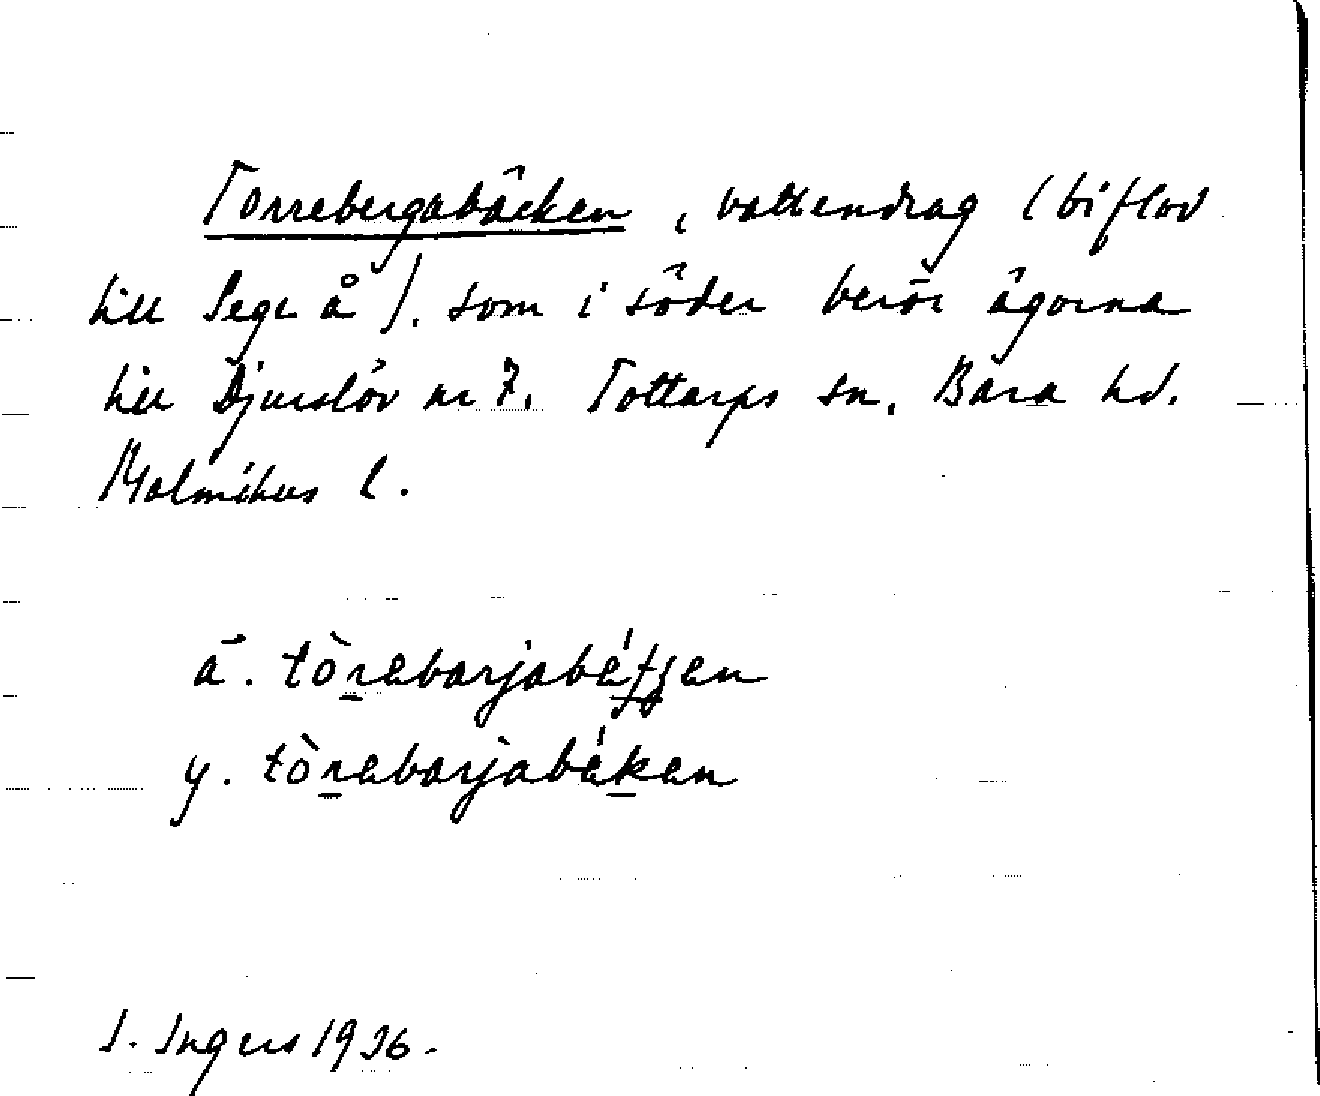 Torrebergabäcken, vattendrag (biflod
till Sege å), som i söder berör ägorna
till Djurslöv nr 7. Tottarps sn, Bara hd.
Malmöhus l.
ä. tòrebarjabétjen
y. tòrebarjabéken
I. Ingers 1936.